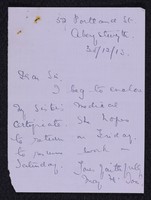 53 Portland St.
Aberystwyth.
20/12/12.
Dear Sir,
I beg to enclose
my sister's medical
certificate. She hopes
to return on Friday.
to resume work on
Saturday.
Yours faithfully